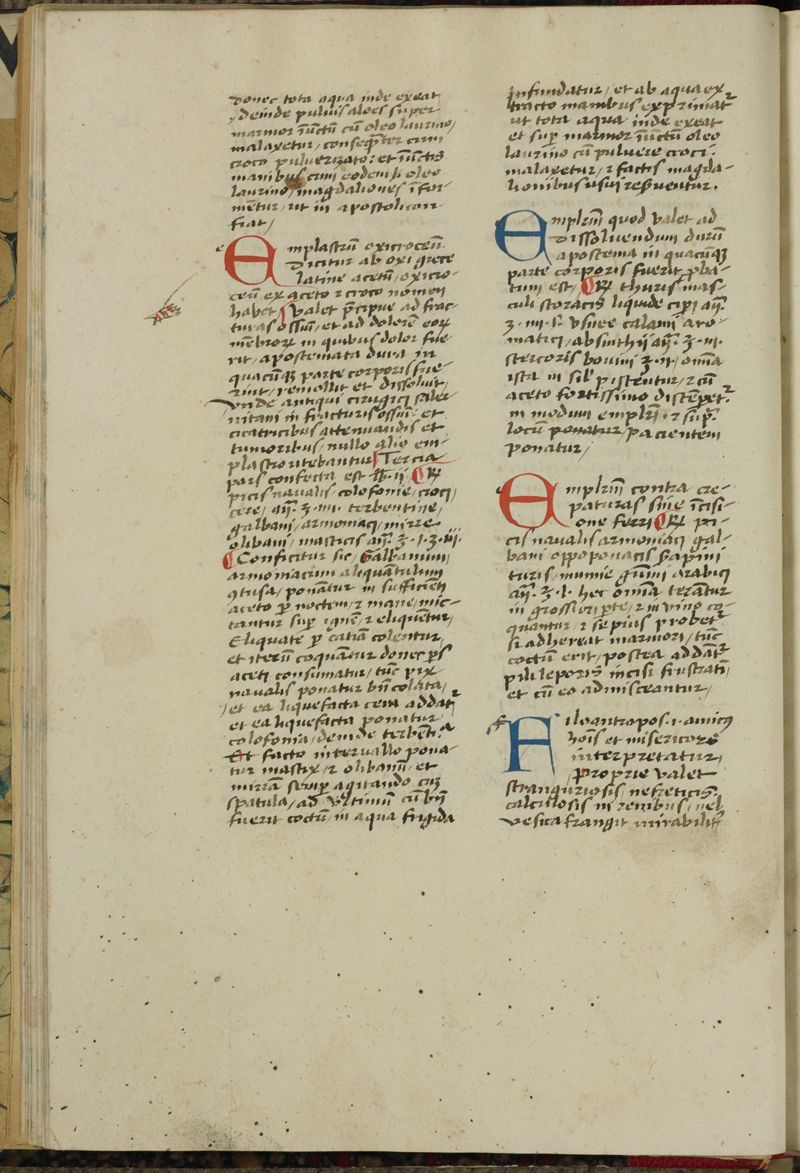 donec tota aqua inde exeat
deinde pulvis aloes super
marmor iūctū cū oleo laurino
malaxetur, conseq̄ter cum
croco pulverizato: et iūctis
manibus cum eodem li oleo
laurino, magdaliones ifor-
mētur, ut in apostolicon
fiat
Emplastrū oxicroceū
dicitur ab oxi grece
latine acetū, oxicro-
ceū ex aceto ⁊ croco nomen
habet valet p̄cipue ad frac-
turas ossiū, et ad dolorē eorꝝ
mēbrorꝝ in quibus dolor fue-
rit, apostemata dura in
quacūqꝫ parte corporis fue-
rint, remollit et dissolvit,
Unde antiqui cirugici saler-
nitani in fracturis ossiū, et
cicatricibus attenuandis et
tumoribus, nullo alio em-
plastro utebantur Tercia
pars confecta est lb. ii. ℞
picis navalis, colofonie, croci,
cere, aā. ʒ. iiii. terbentine,
galbani, armoniaci, mirre
olibani, masticis aā. ʒ. i. ʒ. iii.
Conficitur sic, Galbanum
armoniacum aliquātulum
ꝯtusa, ponātur in sufficiēti
aceto p̄ noctem, ⁊ mane, mit-
tantur sup̄ ignē, ⁊ eliquētur,
Eliquate p̄ colentur
et iterū coquātur donec p̄s
aceti consumatur, tūc pix
navalis ponatur bn̄ colata,
et ea liquefacta cera addat̄
et ea liquefacta ponatur
colofonia, deinde terbēt.
Et facto intervallo pona-
tur mastix, ⁊ olibanū, et
mirrā semp̄ agitando cū
spatula, ad ultimum cū bn̄
fuerit coctū, in aqua frigida
infundatur, et ab aqua ex-
tracto manibus exprimat̄
ut tota aqua inde exeat
et sup̄ marmor iūctū oleo
laurino cū pulvere croci
malaxetur, ⁊ factis magda-
lionibus usui reserventur.
Emplrm̄ quod valet ad
dissolvendum durū
apostema in quacūqꝫ
parte corporis fuerit, ꝓba-
tum est, ℞ thuris mas-
culi storacis liquide cipi aā.
ʒ. iiii. s. usnee calami aro-
matici, absinthii aā. ʒ. iii.
stercoris bovini ʒ. ii, omīa
ista in sil' pistentur, ⁊ cū
aceto fortissimo distēpet̄
in modum emplrī, ⁊ sup̄
locū ponatur pacientem
ponatur,
Emplrm̄ contra cre-
paturas sine icisi-
one ferri ℞ pi-
cis navalis armoniaci gal-
bani oppoponacis serapini
turis, mumie gūmi arabici
aā. ʒ. i. hec omīa terātur
in grossiori p̄te, ⁊ in vino co-
quantur, ⁊ sepius probet̄
si adhereat marmori, tūc
coctū erit, postea addāt̄
pili leporis incisi frustratī,
et cū eo admisceantur,
Filoantropos. i. amicꝰ
hoīs et misericors
interpretatur,
proprie valet
stranguriosis nefreticis
calculosis in renibus, vel
vesica frangit mirabilit̄